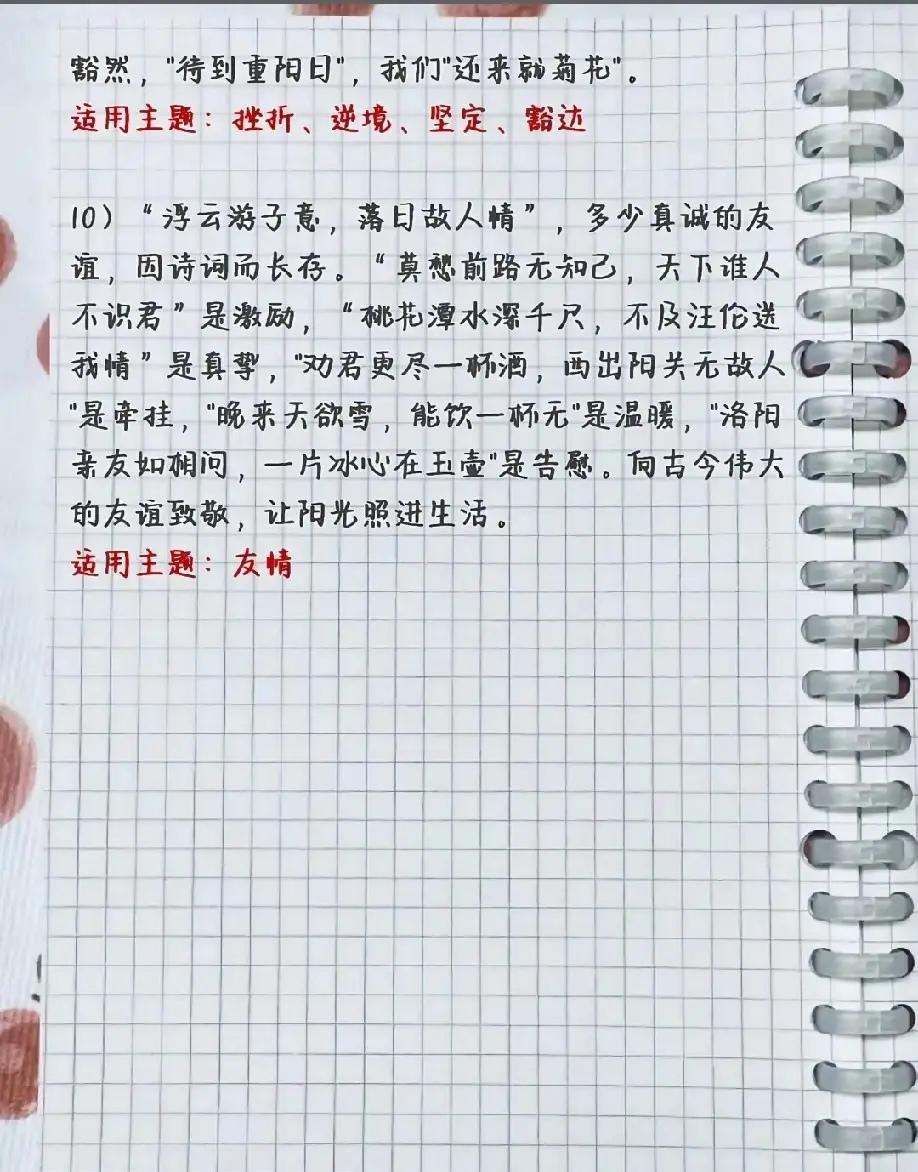 豁然，"待到重阳日"，我们"还来就菊花"。
适用主题：挫折、逆境、坚定、豁达
10）“浮云游子意，落日故人情”，多少真诚的友
谊，因诗词而长存。“莫愁前路无知己，天下谁人
不识君”是激励，“桃花潭水深千尺，不及汪伦送
我情”是真挚，"劝君更尽一杯酒，西出阳关无故人
"是牵挂，"晚来天欲雪，能饮一杯无"是温暖，"洛阳
亲友如相问，一片冰心在玉壶"是告慰。向古今伟大
的友谊致敬，让阳光照进生活。
适用主题：友情